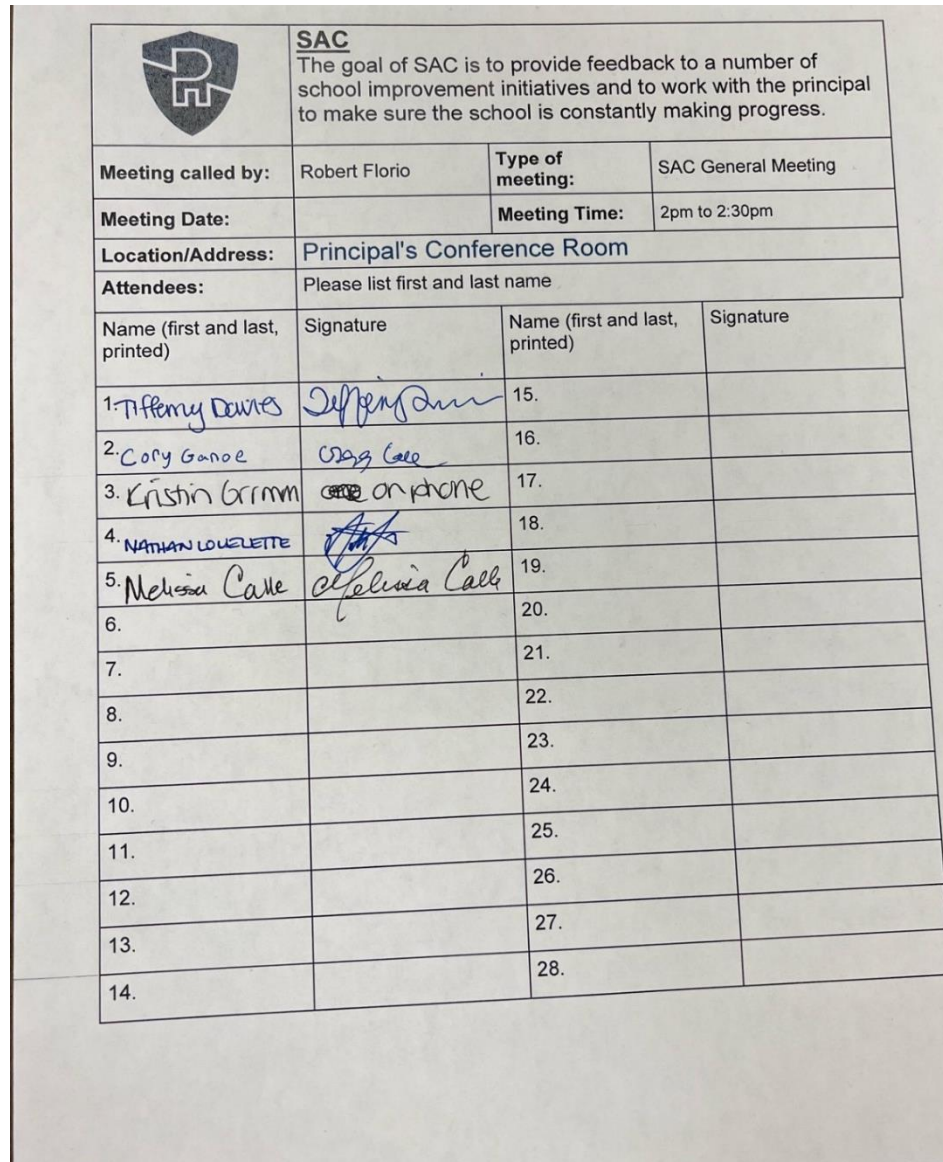 SAC
The goal of SAC is to provide feedback to a number of
school improvement initiatives and to work with the principal
to make sure the school is constantly making progress.
Meeting called by: Robert Florio Type of meeting: SAC General Meeting
Meeting Date: Meeting Time: 2pm to 2:30pm
Location/Address: Principal's Conference Room
Attendees: Please list first and last name
Name (first and last, printed) Signature Name (first and last, printed) Signature
1. Tiffemy Davies 15.
2. Cory Ganoe 16.
3. Kristin Grimm on phone 17.
4. NATHAN LOUELETTE 18.
5. Melissa Calle Melissa Calle 19.
6. 20.
7. 21.
8. 22.
9. 23.
10. 24.
11. 25.
12. 26.
13. 27.
14. 28.